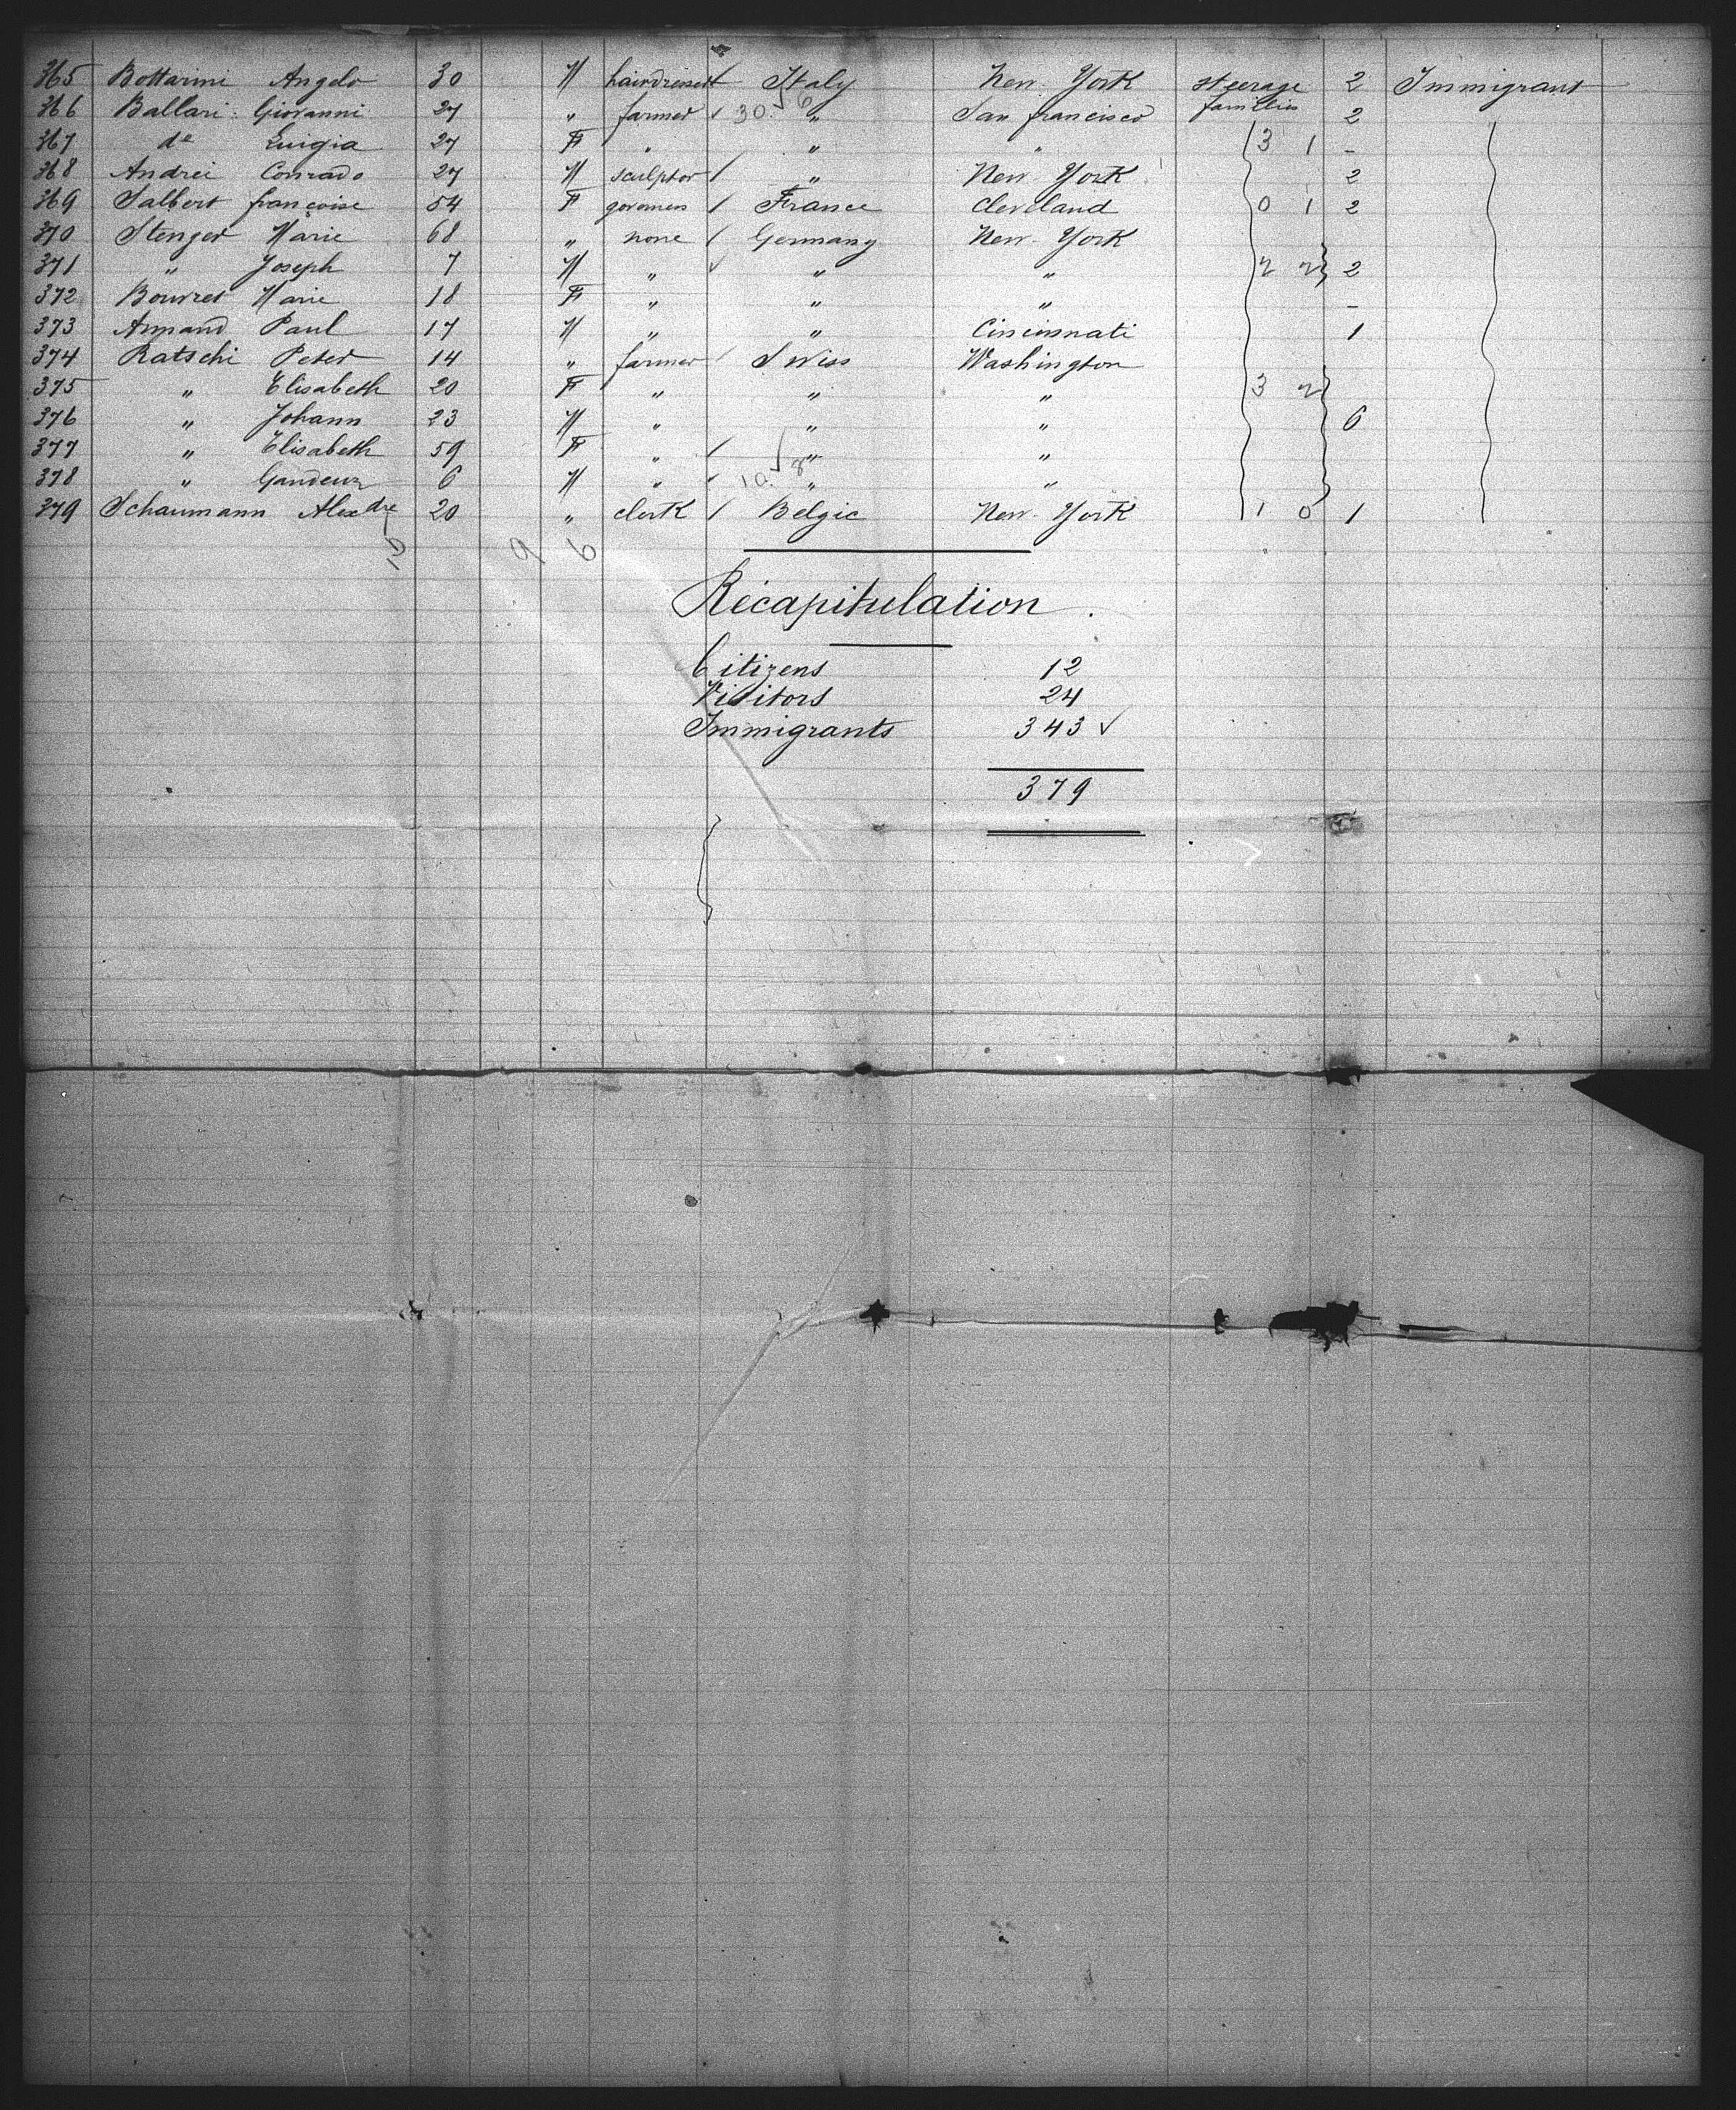 365 Bottarini Angelo 30 M hairdresser Italy New York steerage 2 Immigrant
366 Ballari Giovanni 27 " farmer 30. 6 " San francisco families 2
367 do Luigia 27 F " " " 3 1 -
368 Andrei Conrado 27 M sculptor " New York 2
369 Salbert françoise 54 F France Cleveland 0 1 2
370 Stenger Marie 68 " none Germany New York
371 " Joseph 7 M " " " 2 2 2
372 Bouvret Marie 18 F " " " -
373 Armand Paul 17 M " " Cincinnati 1
374 Ratschi Peter 14 " farmer Swiss Washington
375 " Elisabeth 20 F " " " 3 2
376 " Johann 23 M " " " 6
377 " Elisabeth 59 F " " "
378 " Gaudenz 6 M " 10. 8 " "
379 Schaumann Alexdre 20 " clerk Belgic New York 1 0 1
9 6
Récapitulation.
Citizens 12
Visitors 24
Immigrants 343 ✓
379